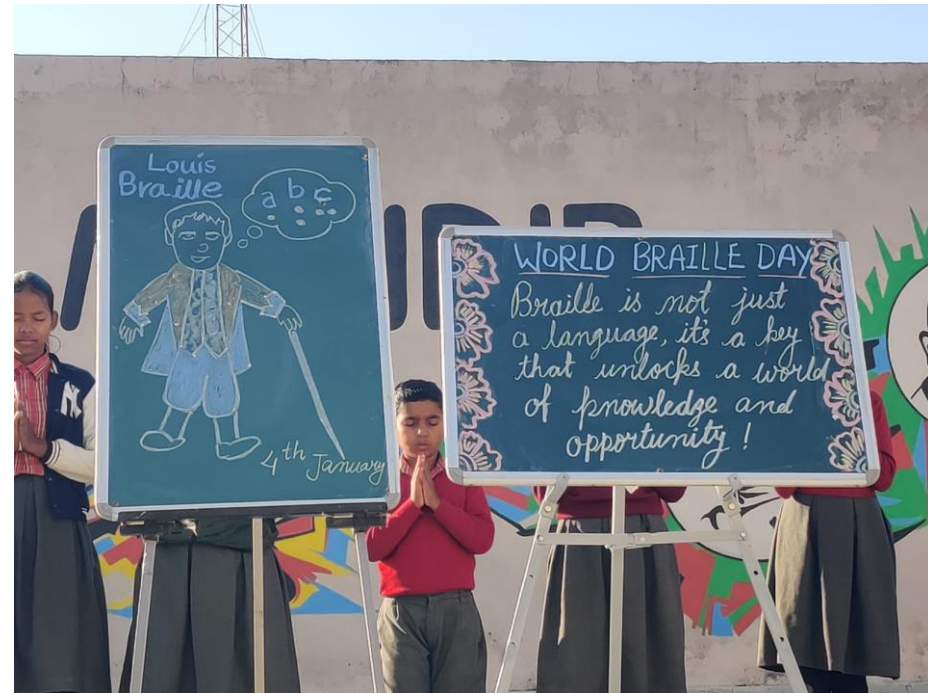 Louis
Braille
a b c
4th January
WORLD BRAILLE DAY
Braille is not just
a language, it's a key
that unlocks a world
of knowledge and
opportunity !